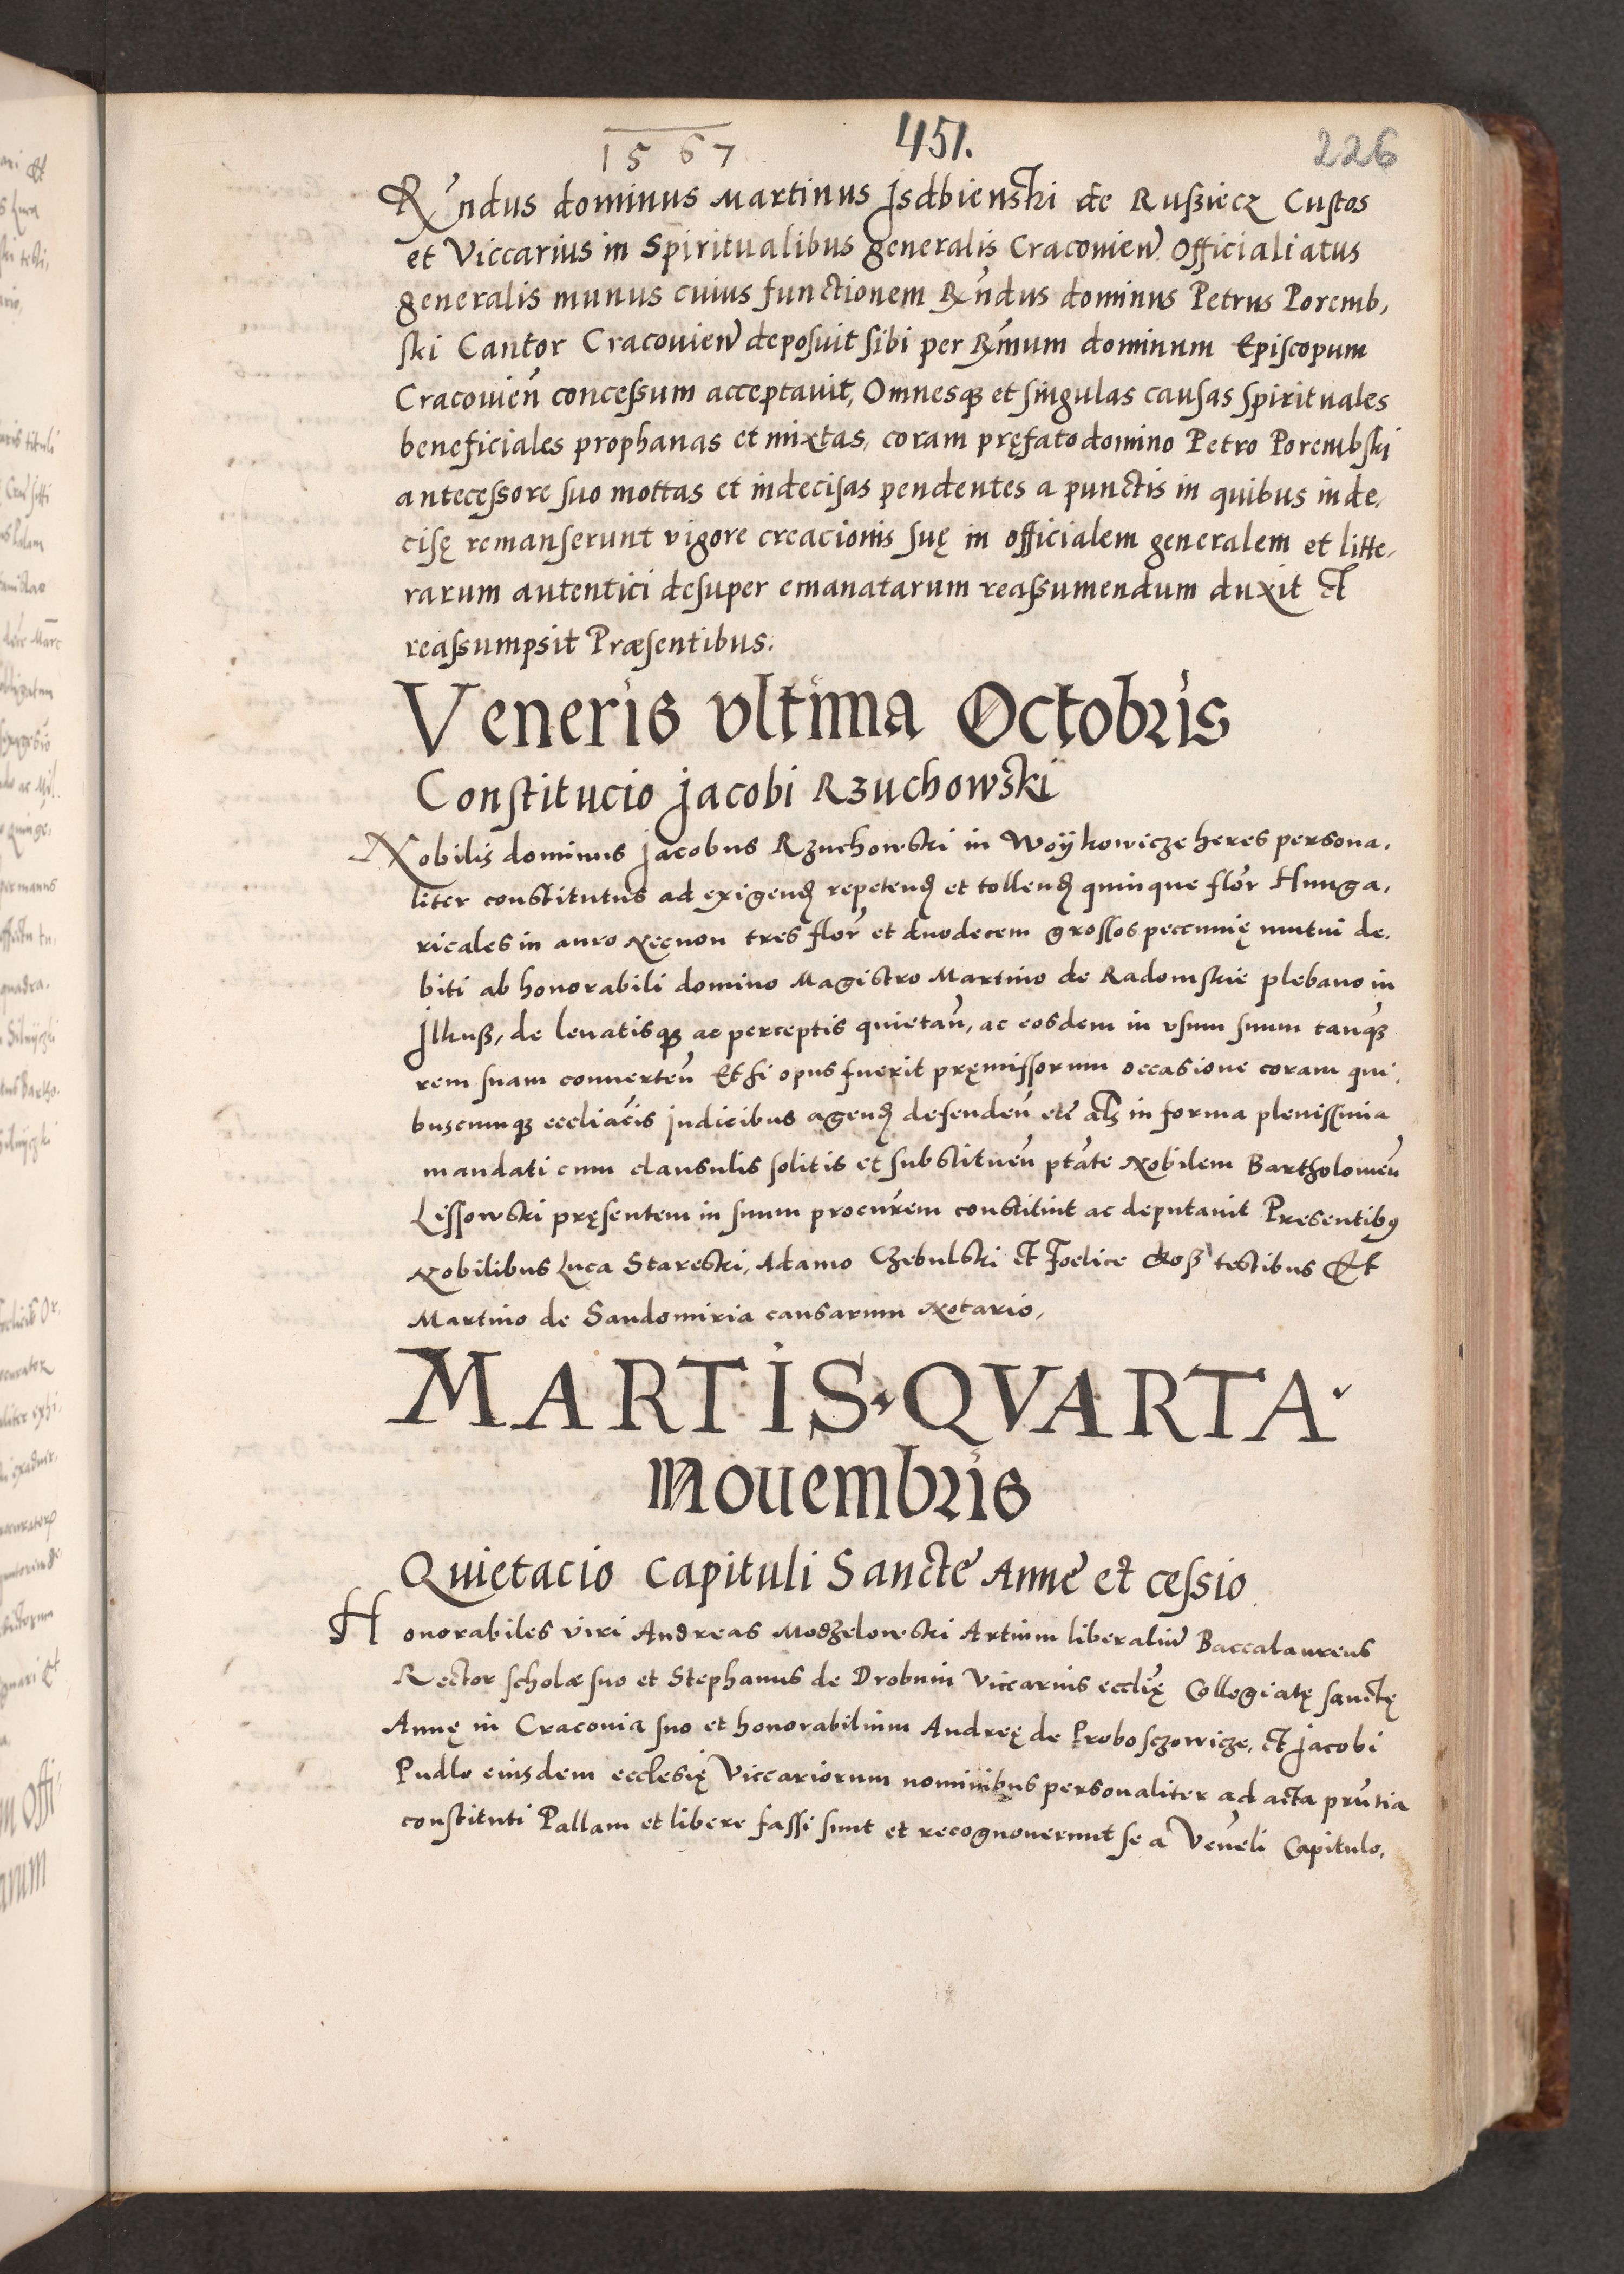 1567 451. 226
Rńdus dominus Martinus Isdbienski de Rußiecz Custos
et Viccarius in Spiritualibus generalis Cracouień Officialiatus
generalis munus cuius functionem Rńdus dominus Petrus Poremb,
ski Cantor Cracouień deposuit sibi per Rḿum dominum Episcopum
Cracouień concessum acceptauit, Omnesq3 et singulas causas spirituales
beneficiales prophanas et mixtas, coram pręfato domino Petro Porembski
antecessore suo mottas et indecisas pendentes a punctis in quibus inde,
cisę remanserunt vigore creacionis suę in officialem generalem et litte,
rarum autentici desuper emanatarum reassumendum duxit et
reassumpsit Præsentibus.
Veneris vltima Octobris
Constitucio Jacobi Rzuchowski
Nobilis dominus Jacobus Rzuchowski in Woÿkowicze heres persona,
liter constitutus ad exigend repetend et tollend quinque flor Hunga,
ricales in auro Necnon tres flor et duodecem grossos peccunię mutui de,
biti ab honorabili domino Magistro Martino de Radomskie plebano in
Ilkuß, de leuatisq3 ac perceptis quietań, ac eosdem in vsum suum tanq3
rem suam conuerteń Et si opus fuerit pręmissorum occasione coram qui,
buscumq3 eccliacis Judicibus agend defendeń etc als in forma plenissima
mandati cum clausulis solitis et substitueń ptate Nobilem Bartholomeu
Lissowski pręsentem in suum procurem constituit ac deputauit Presentibus
Nobilibus Luca Stareski, Adamo Czebulski et Foelice koß testibus Et
Martino de Sandomiria causarum Notario,
MARTIS QVARTA
Nouembris
Quietacio Capituli Sancte Anne et cessio
Honorabiles viri Andreas Modzelowski Artium liberaliu Baccalaureus
Rector scholæ suo et Stephanus de Drobnin Viccarius ecclię Collegiatę sanctę
Annę in Cracouia suo et honorabilium Andreę de Proboszczowicze, et Jacobi
Pudlo eiusdem ecclesię Viccariorum nominibus personaliter ad acta pruntia
constituti Pallam et libere fassi sunt et recognouerunt se a Veneli Capitulo,